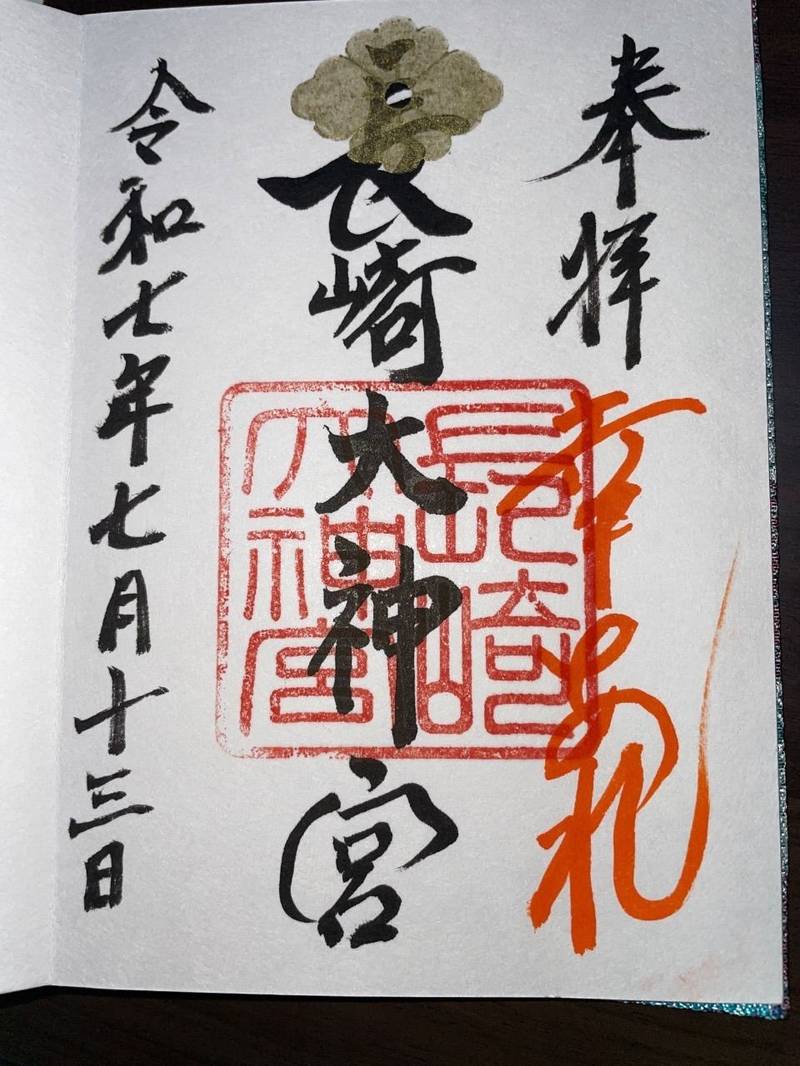 奉拝
幸あれ
長崎大神宮
長崎
大神宮
令和七年七月十三日